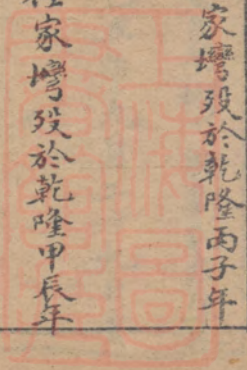 家壪歿於乾隆丙子年
家壪歿於乾隆甲辰年